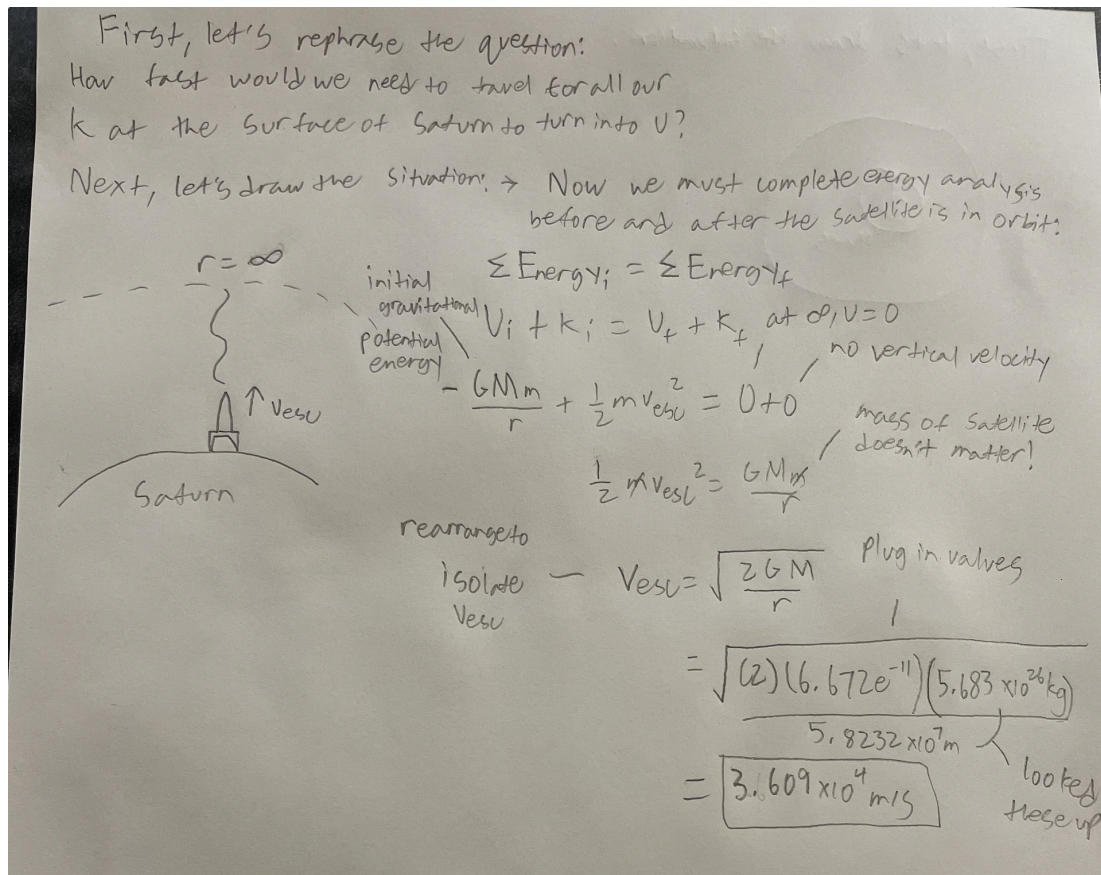 First, let's rephrase the question:
How fast would we need to travel for all our
K at the surface of Saturn to turn into U?
Next, let's draw the situation: → Now we must complete energy analysis
before and after the satellite is in orbit:
r = ∞
Vesc
Saturn
Σ Energyi = Σ Energyf
initial
gravitational
potential
energy
Ui + Ki = Uf + Kf at ∞, U = 0
no vertical velocity
- GMm/r + 1/2 mvesc² = 0+0
mass of satellite
doesn't matter!
1/2 mvesc² = GMm/r
rearrange to
isolate
Vesc
Vesc = √(2GM/r)
Plug in values
= √((2)(6.672e⁻¹¹)(5.683 x10²⁶kg)/5.8232 x10⁷m)
looked
these up
= 3.609 x10⁴ m/s